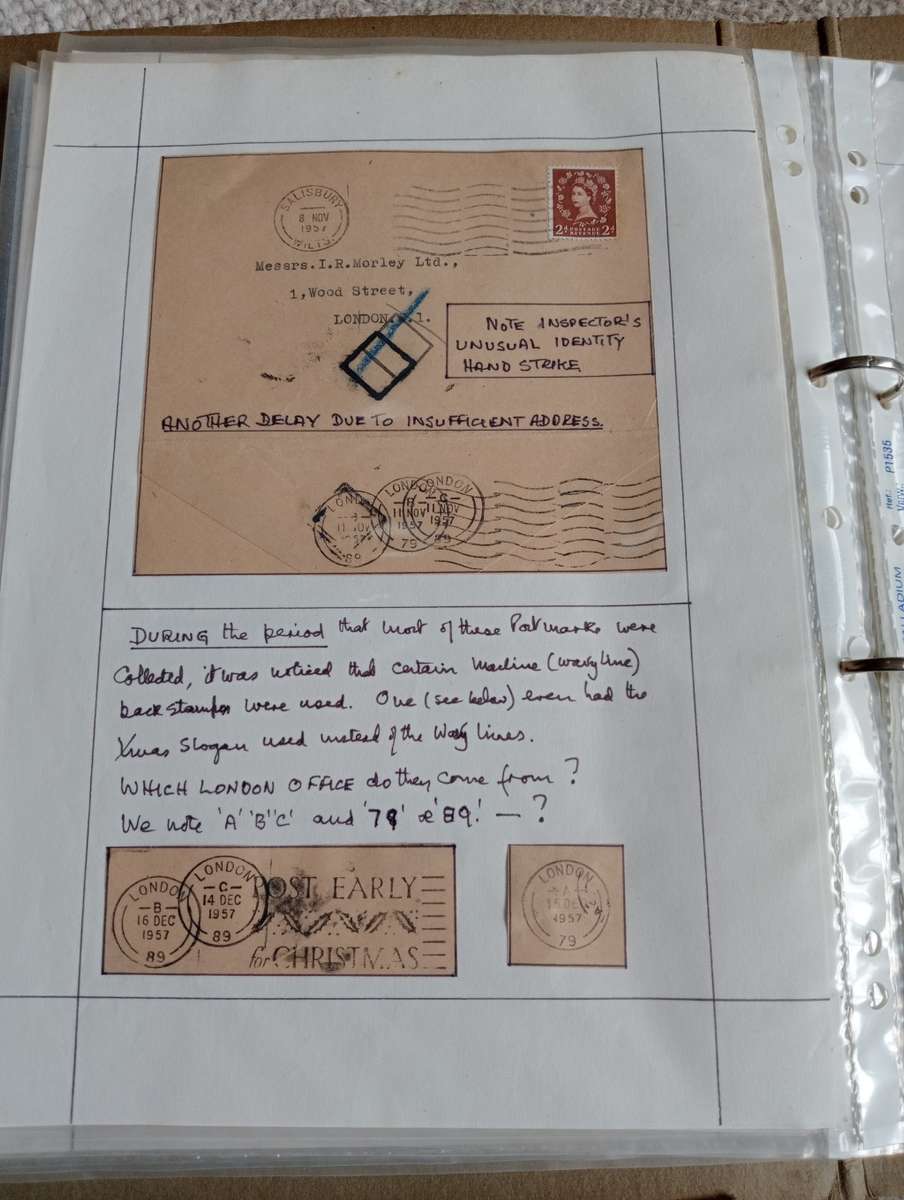 SALISBURY
8 NOV
1957
WILTS.
2D POSTAGE 2D
REVENUE
Messrs.I.R.Morley Ltd.,
1,Wood Street,
LONDON .1.
NOTE INSPECTOR'S
UNUSUAL IDENTITY
HAND STRIKE
ANOTHER DELAY DUE TO INSUFFICIENT ADDRESS.
LONDON
11 NOV
89
LONDON
-B-
11 NOV
1957
79
LONDON
-C-
11 NOV
1957
89
DURING the period that most of these Postmarks were
collected, it was noticed that certain machine (wavy line)
back stamps were used. One (see below) even had the
Xmas Slogan used instead of the Wavy lines.
WHICH LONDON OFFICE do they come from?
We note 'A' 'B' 'C' and '79' & '89'. — ?
LONDON
-B-
16 DEC
1957
89
LONDON
-C-
14 DEC
1957
89
POST EARLY
for CHRISTMAS
LONDON
-A-
15 DEC
1957
79
Ref.: P1535